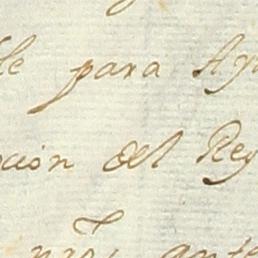 le para Ay
ción del Rey
nra, ante